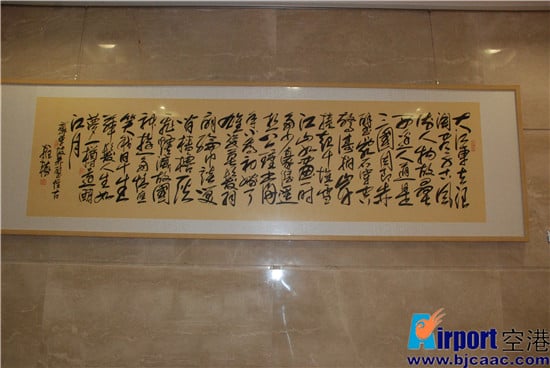 大江東去浪
淘盡千古風
流人物故壘
西邊人道是
三國周郎赤
壁亂石穿空
驚濤拍岸
捲起千堆雪
江山如畫一時
多少豪傑遙
想公瑾當
年小喬初嫁了
雄姿英發羽
扇綸巾談笑
間檣櫓灰
飛煙滅故國
神遊多情應
笑我早生
華髮人生如
夢一樽還酹
江月
Airport 空港
www.bjcaac.com